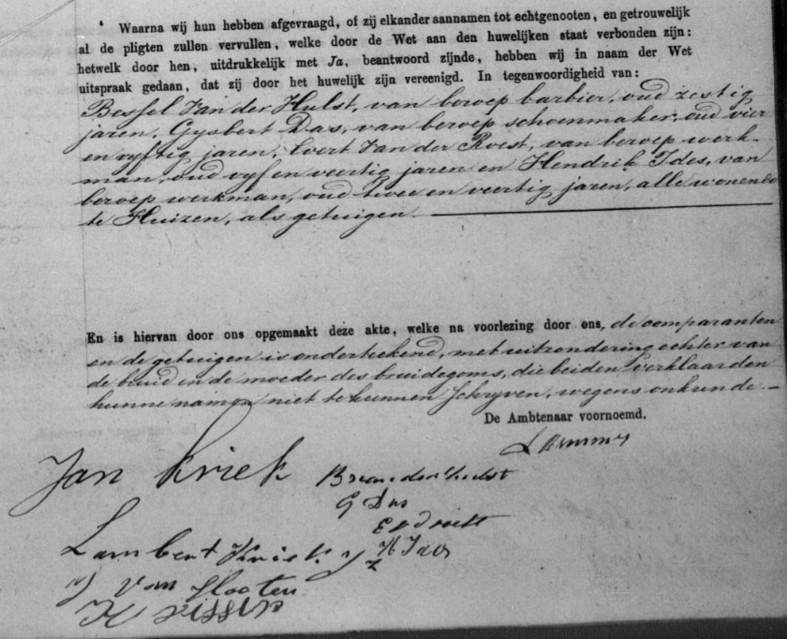 Waarna wij hun hebben afgevraagd, of zij elkander aannamen tot echtgenooten, en getrouwelijk
al de pligten zullen vervullen, welke door de Wet aan den huwelijken staat verbonden zijn:
hetwelk door hen, uitdrukkelijk met Ja, beantwoord zijnde, hebben wij in naam der Wet
uitspraak gedaan, dat zij door het huwelijk zijn vereenigd. In tegenwoordigheid van:
Bessel Van der Hulst, van beroep barbier, oud zestig
jaren, Gysbert Das, van beroep schoenmaker, oud vier
en vyftig jaren, Evert Van der Roest, van beroep werk-
man, oud vyf en veertig jaren en Hendrik Ides, van
beroep werkman, oud twee en veertig jaren, alle wonende
te Huizen, als getuigen.
En is hiervan door ons opgemaakt deze akte, welke na voorlezing door ons, de comparanten
en de getuigen is onderteekend, met uitzondering echter van
de bruid en de moeder des bruidegoms, die beiden verklaarden
hunne namen niet te kunnen schryven, wegens onkunde.
De Ambtenaar voornoemd.
Jan Kriek
B van der Hulst
G Das
Lambert Kriek
J van Slooten